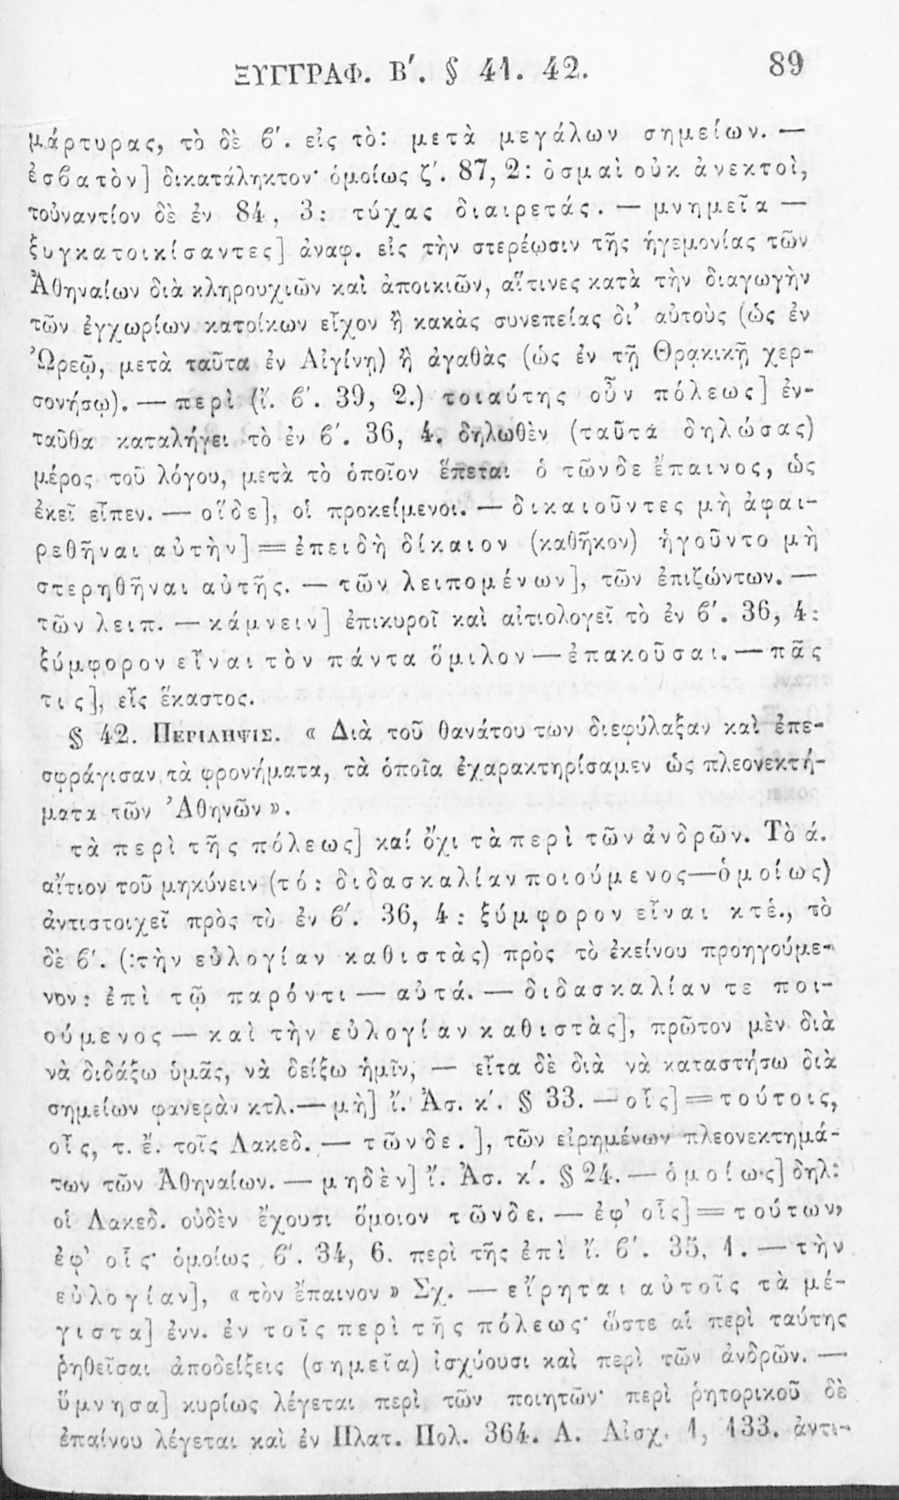 ΞΥΓΓΡΑΦ. Β΄. § 41. 42. 89
μάρτυρας, τὸ δὲ ϐ΄. εἰς τὸ: μετὰ μεγάλων σημείων. —
ἐσϐατὸν] δικατάληκτον· ὁμοίως ζ΄. 87, 2: ὀσμαὶ οὐκ ἀνεκτοὶ,
τοὐναντίον δὲ ἐν 84, 3: τύχας διαιρετάς. — μνημεῖα —
ξυγκατοικίσαντες] ἀναφ. εἰς τὴν στερέωσιν τῆς ἡγεμονίας τῶν
Ἀθηναίων διὰ κληρουχιῶν καὶ ἀποικιῶν, αἵτινες κατὰ τὴν διαγωγὴν
τῶν ἐγχωρίων κατοίκων εἶχον ἢ κακὰς συνεπείας δι' αὐτοὺς (ὡς ἐν
Ὠρεῷ, μετὰ ταῦτα ἐν Αἰγίνῃ) ἢ ἀγαθὰς (ὡς ἐν τῇ Θρᾳκικῇ χερ-
σονήσῳ). — περὶ (ἴ. ϐ΄. 39, 2.) τοιαύτης οὖν πόλεως] ἐν-
ταῦθα καταλήγει τὸ ἐν ϐ΄. 36, 4. δηλωθὲν (ταῦτά δηλώσας)
μέρος τοῦ λόγου, μετὰ τὸ ὁποῖον ἕπεται ὁ τῶνδε ἔπαινος, ὡς
ἐκεῖ εἶπεν. — οἵδε], οἱ προκείμενοι. — δικαιοῦντες μὴ ἀφαι-
ρεθῆναι αὐτὴν] = ἐπειδὴ δίκαιον (καθῆκον) ἡγοῦντο μὴ
στερηθῆναι αὐτῆς. — τῶν λειπομένων], τῶν ἐπιζώντων. —
τῶν λειπ. — κάμνειν] ἐπικυροῖ καὶ αἰτιολογεῖ τὸ ἐν ϐ΄. 36, 4:
ξύμφορον εἶναι τὸν πάντα ὅμιλον — ἐπακοῦσαι. — πᾶς
τις], εἷς ἕκαστος.
§ 42. ΠΕΡΙΛΗΨΙΣ. « Διὰ τοῦ θανάτου των διεφύλαξαν καὶ ἐπε-
σφράγισαν τὰ φρονήματα, τὰ ὁποῖα ἐχαρακτηρίσαμεν ὡς πλεονεκτή-
ματα τῶν Ἀθηνῶν ».
τὰ περὶ τῆς πόλεως] καί ὄχι τὰ περὶ τῶν ἀνδρῶν. Τὸ ά.
αἴτιον τοῦ μηκύνειν (τό: διδασκαλίαν ποιούμενος—ὁμοίως)
ἀντιστοιχεῖ πρὸς τὸ ἐν ϐ΄. 36, 4: ξύμφορον εἶναι κτἑ., τὸ
δὲ ϐ΄. (:τὴν εὐλογίαν καθιστὰς) πρὸς τὸ ἐκείνου προηγούμε-
νον: ἐπὶ τῷ παρόντι — αὐτά. — διδασκαλίαν τε ποι-
ούμενος — καὶ τὴν εὐλογίαν καθιστὰς], πρῶτον μὲν διὰ
νὰ διδάξω ὑμᾶς, νὰ δείξω ἡμῖν, — εἶτα δὲ διὰ νὰ καταστήσω διὰ
σημείων φανερὰν κτλ.— μὴ] ἴ. Ἀσ. κ΄. § 33. — οἷς] = τούτοις,
οἷς, τ. ἔ. τοῖς Λακεδ. — τῶνδε.], τῶν εἰρημένων πλεονεκτημά-
των τῶν Ἀθηναίων. — μηδὲν] ἴ. Ἀσ. κ΄. § 24. — ὁμοίως] δηλ:
οἱ Λακεδ. οὐδὲν ἔχουσι ὅμοιον τῶνδε. — ἐφ' οἷς] = τούτων,
ἐφ' οἷς· ὁμοίως ϐ΄. 34, 6. περὶ τῆς ἐπὶ ἴ. ϐ΄. 35, 1. — τὴν
εὐλογίαν], « τὸν ἔπαινον » Σχ. — εἴρηται αὐτοῖς τὰ μέ-
γιστα] ἐνν. ἐν τοῖς περὶ τῆς πόλεως· ὥστε αἱ περὶ ταύτης
ῥηθεῖσαι ἀποδείξεις (σημεῖα) ἰσχύουσι καὶ περὶ τῶν ἀνδρῶν. —
ὕμνησα] κυρίως λέγεται περὶ τῶν ποιητῶν· περὶ ῥητορικοῦ δὲ
ἐπαίνου λέγεται καὶ ἐν Πλατ. Πολ. 364. Α. Αἰσχ. 1, 133. ἀντι-